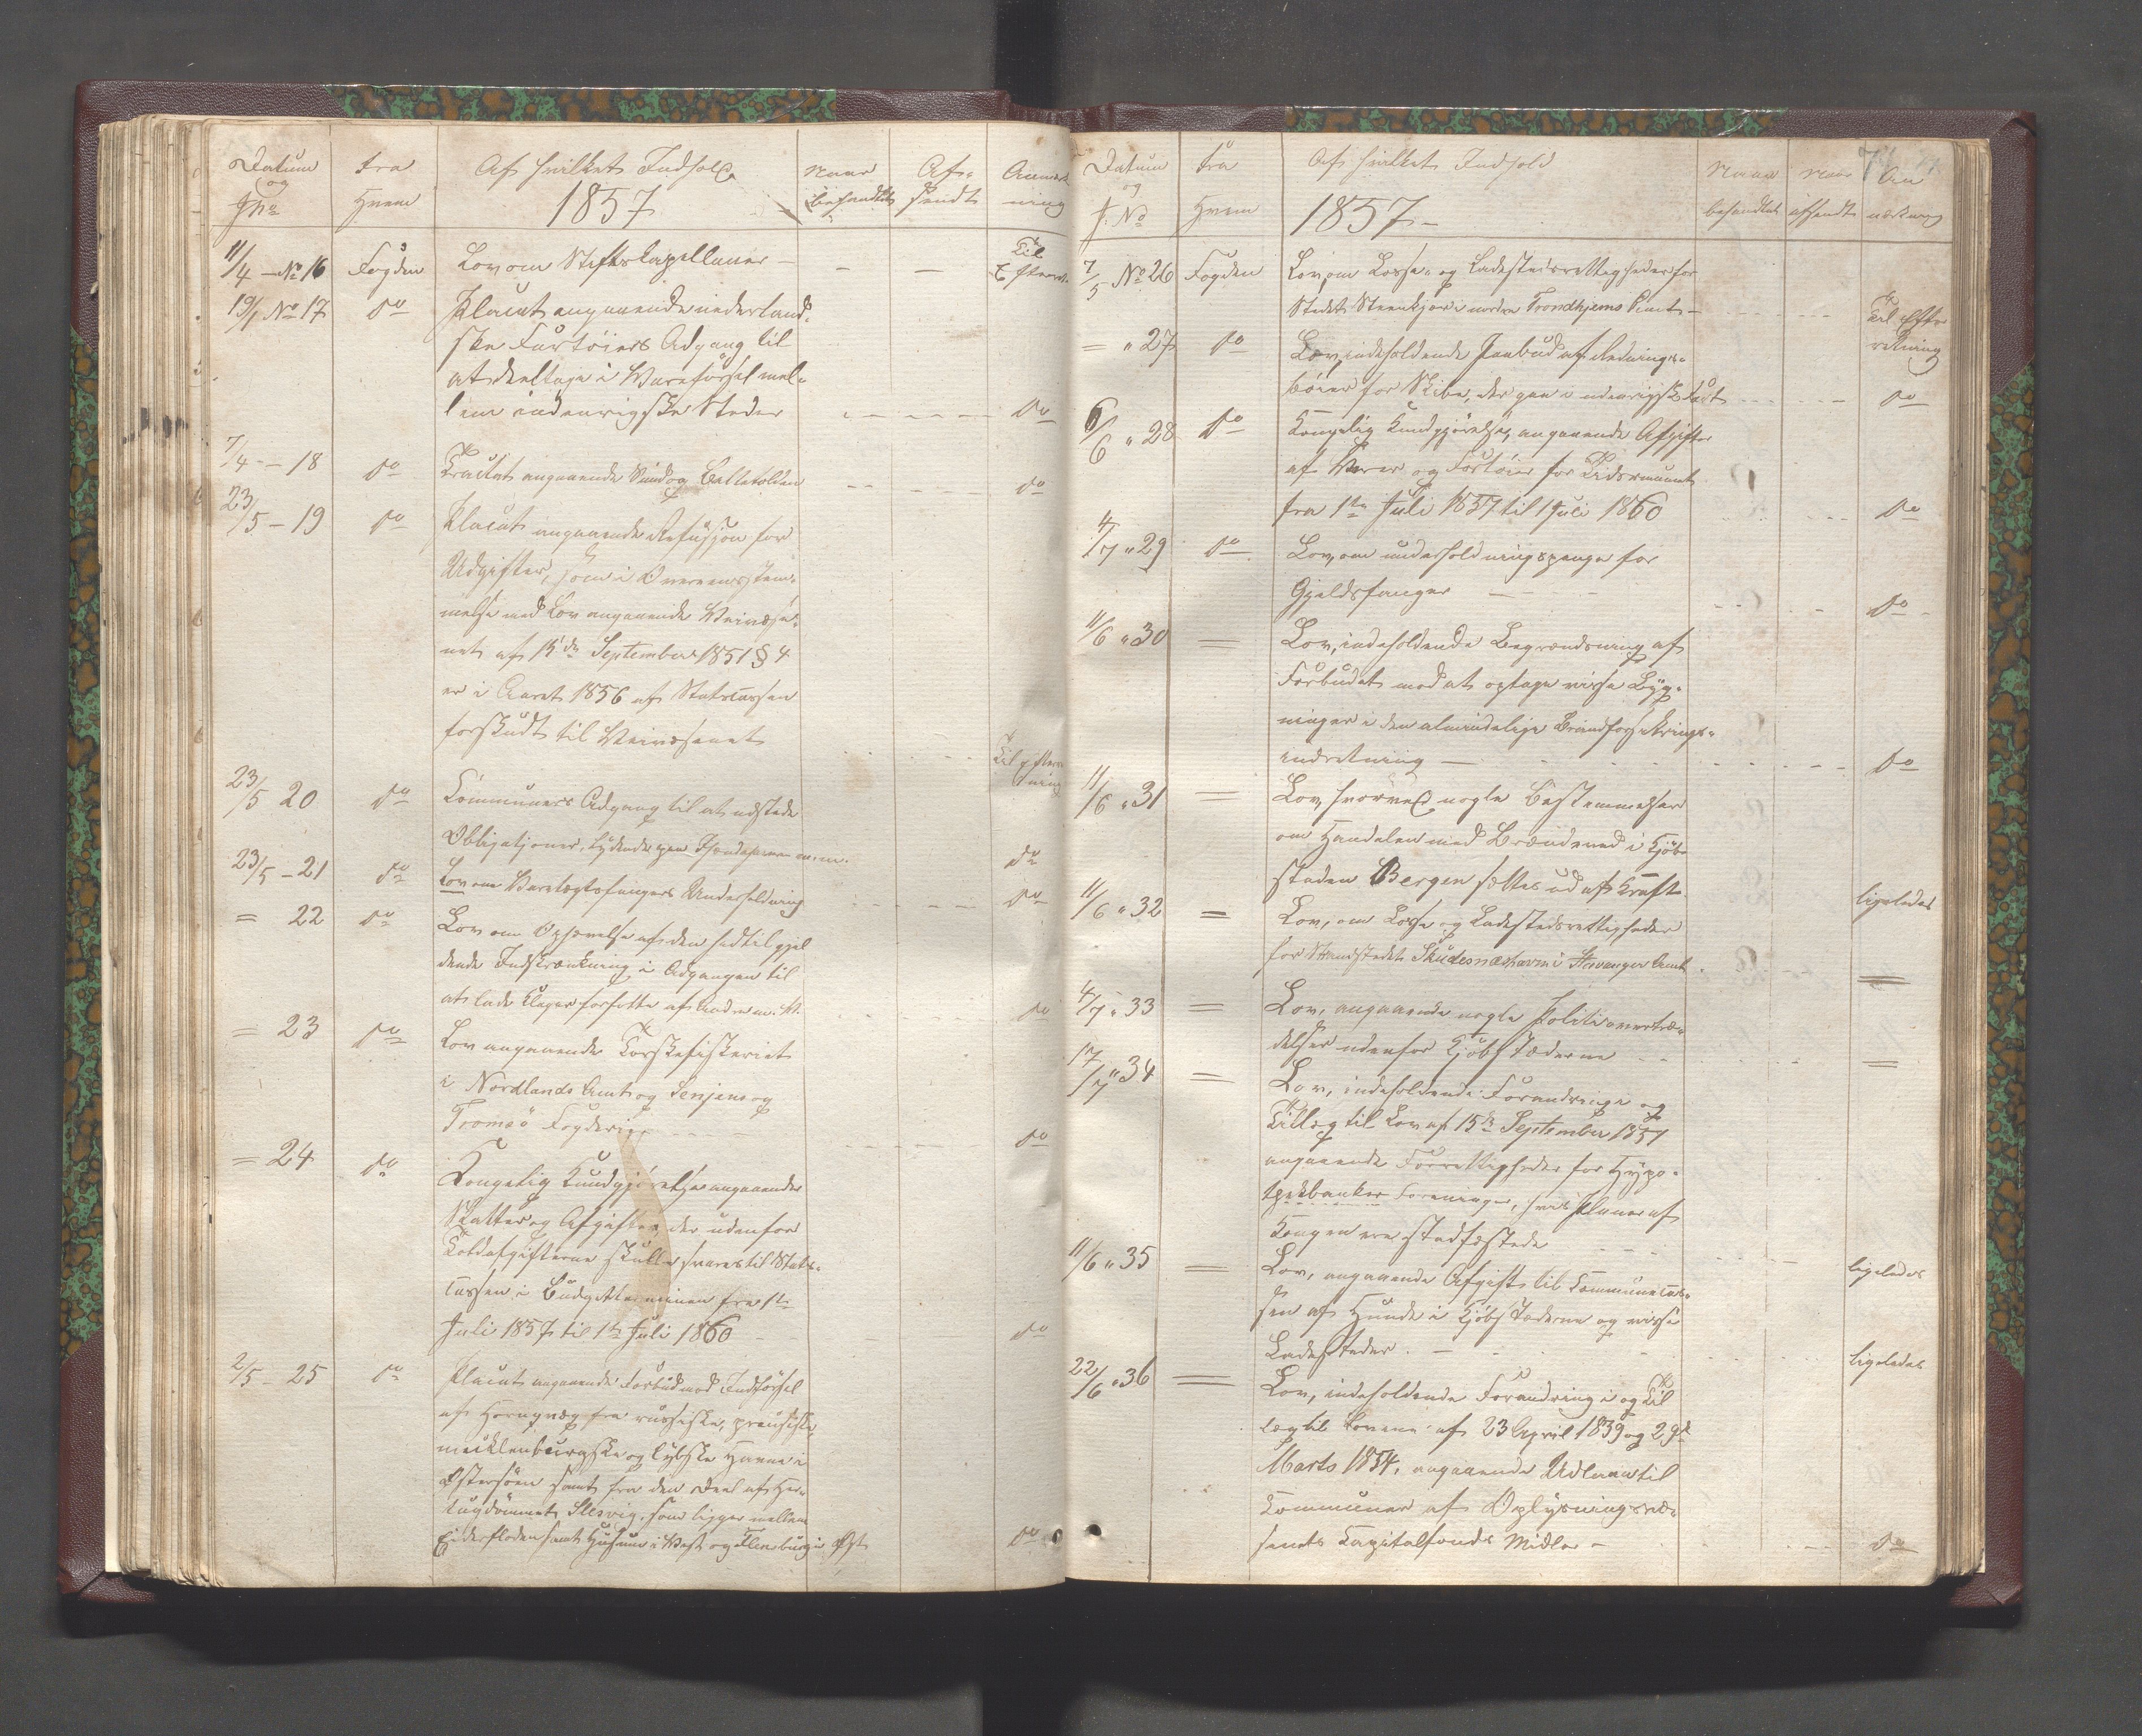 Datum og J No
Fra Hvem
Af hvilket Indhold
1857
Naar behandlet
Af- sendt
Anmærk ning
11/4 - No 16 Fogden Lov om Stiftskapellaner - - - Til Efterret.
19/1 No 17 do Placat angaaende nederland-
ske Fartøiers Adgang til
at deeltage i Vareførsel mel-
lem indenrigske Steder do
7/4 - 18 do Tractat angaaende Sund og Belttolden do
23/5 - 19 do Placat angaaende Refusjon for
Udgifter, som i Overeensstem-
melse med Lov angaaende Veivæse-
net af 15de September 1851 § 4
er i Aaret 1856 af Statscassen
forskudt til Veivæsenet Til efterret
ning
23/5 20 do Communers Adgang til at udstede
Obligationer, lydende paa Ihændehaver m. m. do
23/5 - 21 do Lov om Varetægtsfangers Underholdning do
= 22 do Lov om Ophævelse af den hidtil gjel
dende Indskrænkning i Adgangen til
at lade Klager forfatte af Andre m. V. do
= 23 do Lov angaaende Torskefiskeriet
i Nordlands Amt og Senjens og
Tromsø Fogderi do
= 24 do Kongelig Kundgjørelse angaaende
Skatter og Afgifter, der udenfor
Toldafgifterne skulle svares til Stats-
cassen i Budgetterminen fra 1te
Juli 1857 til 1te Juli 1860 - do
2/5 - 25 do Placat angaaende Forbud mod Indførsel
af Hornqvæg fra russiske, preusiske
mecklenburgske og lybske Havne i
Østersøen samt fra den Deel af Her-
tugdømmet Slesvig, som ligger mellem
Eiderfloden samt Husum i Vest og Flensburg i Øst do
Datum og J. No
Fra Hvem
Af hvilket Indhold
1857 -
Naar behandlet
Naar afsendt
An mærkning
7/5 No 26 Fogden Lov, om Losse- og Ladestedsrettigheder for
Stedet Steenkjær i nordre Trondhjems Amt - Til Efter
retning
= " 27 do Lov, indeholdende Paabud af Rednings-
bøier for Skibe, der gaa i udenrigsk Fart do
6/6 " 28 do Kongelig Kundgjørelse, angaaende Afgifter
af Varer og Fartøier for Tidsrummet
fra 1te Juli 1857 til 1 Juli 1860 do
4/7 " 29 do Lov, om underholdningspenge for
Gjeldsfanger - do
11/6 " 30 = Lov, indeholdende Begrændsning af
Forbudet mod at optage visse Byg-
ninger i den almindelige Brandforsikrings-
indretning - do
11/6 " 31 = Lov, hvorved nogle Bestemmelser
om Handelen med Brændeved i Kjøb-
staden Bergen sættes ud af Kraft ligeledes
11/6 " 32 = Lov, om Losse og Ladestedsrettigheder
for Strandstedet Skudesnæshavn i Stavanger Amt =
4/7 " 33 = Lov, angaaende nogle Politiovertræ-
delser udenfor Kjøbstæderne =
17/7 " 34 = Lov, indeholdende Forandringe og
Tillæg til Lov af 15de September 1851
angaaende Forrettigheder for Hypo-
thekbanker Foreninger, hvis Planer af
Kongen ere stadfæstede ligeledes
11/6 " 35 = Lov, angaaende Afgift til Communecas-
sen af Hunde i Kjøbstæderne og visse
Ladesteder. - ligeledes
22/6 " 36 = Lov, indeholdende Forandring i og Til
læg til Lovene af 23 April 1839 og 29de
Marts 1854, angaaende Udlaan til
Communer af Oplysningsvæ-
senets Kapitalfonds Midler - do